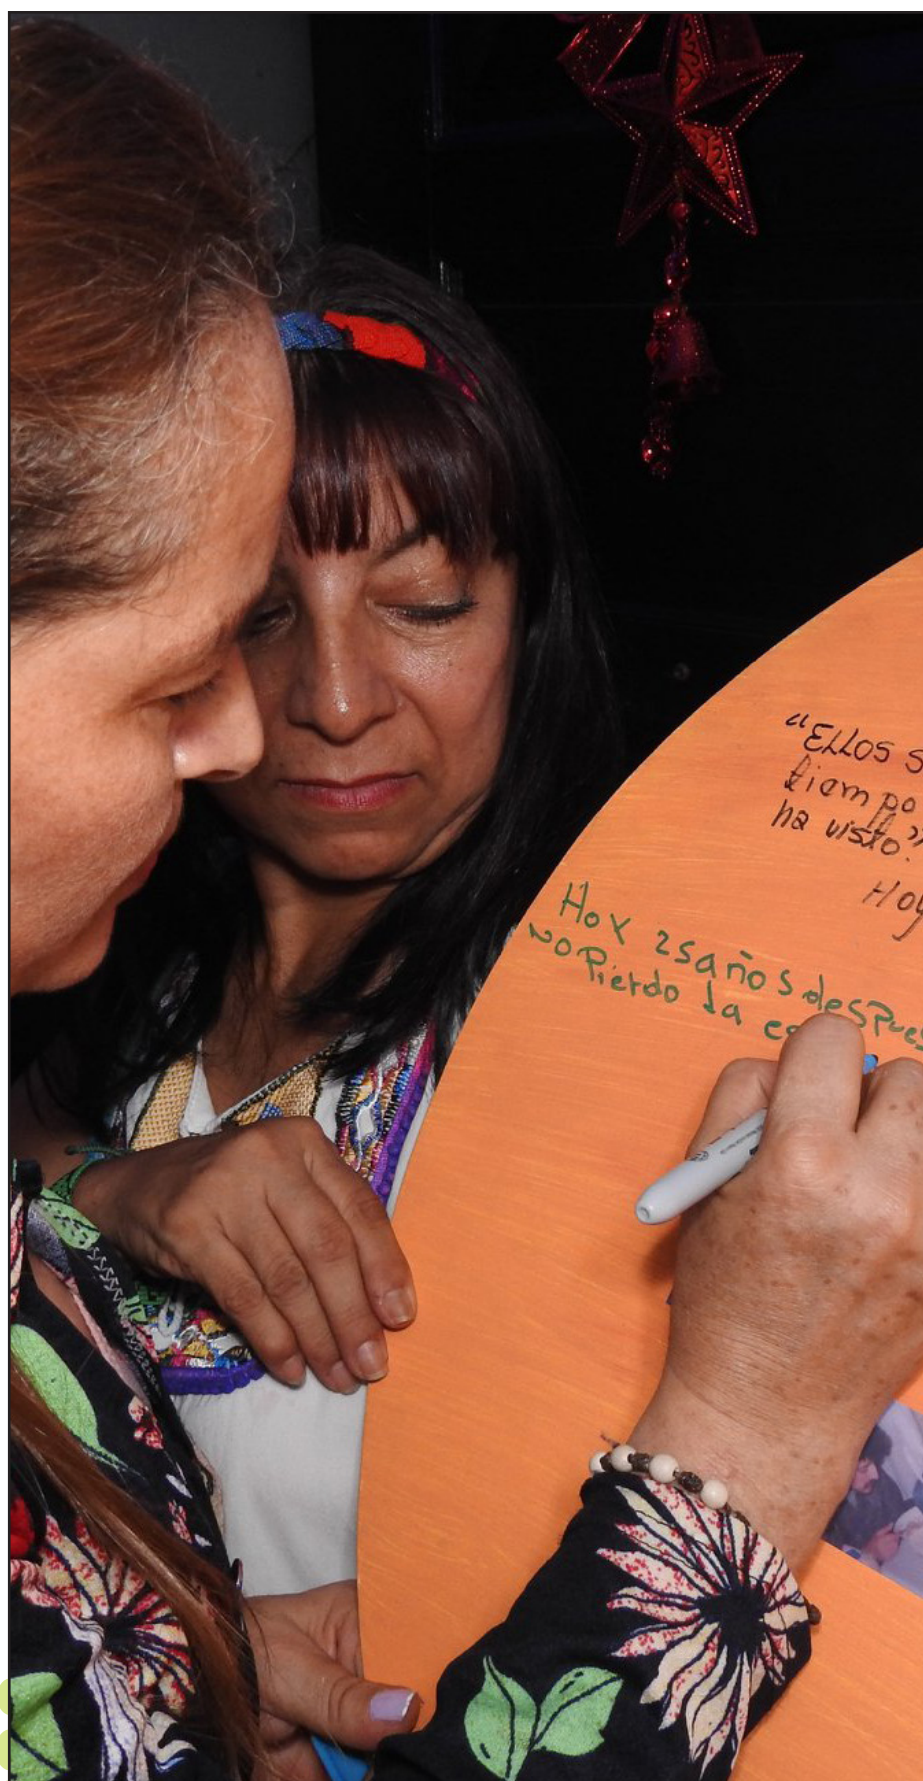 "ELLOS S
tiempo
ha visto."
Hoy
Hoy 25 años despues
no Pierdo la es